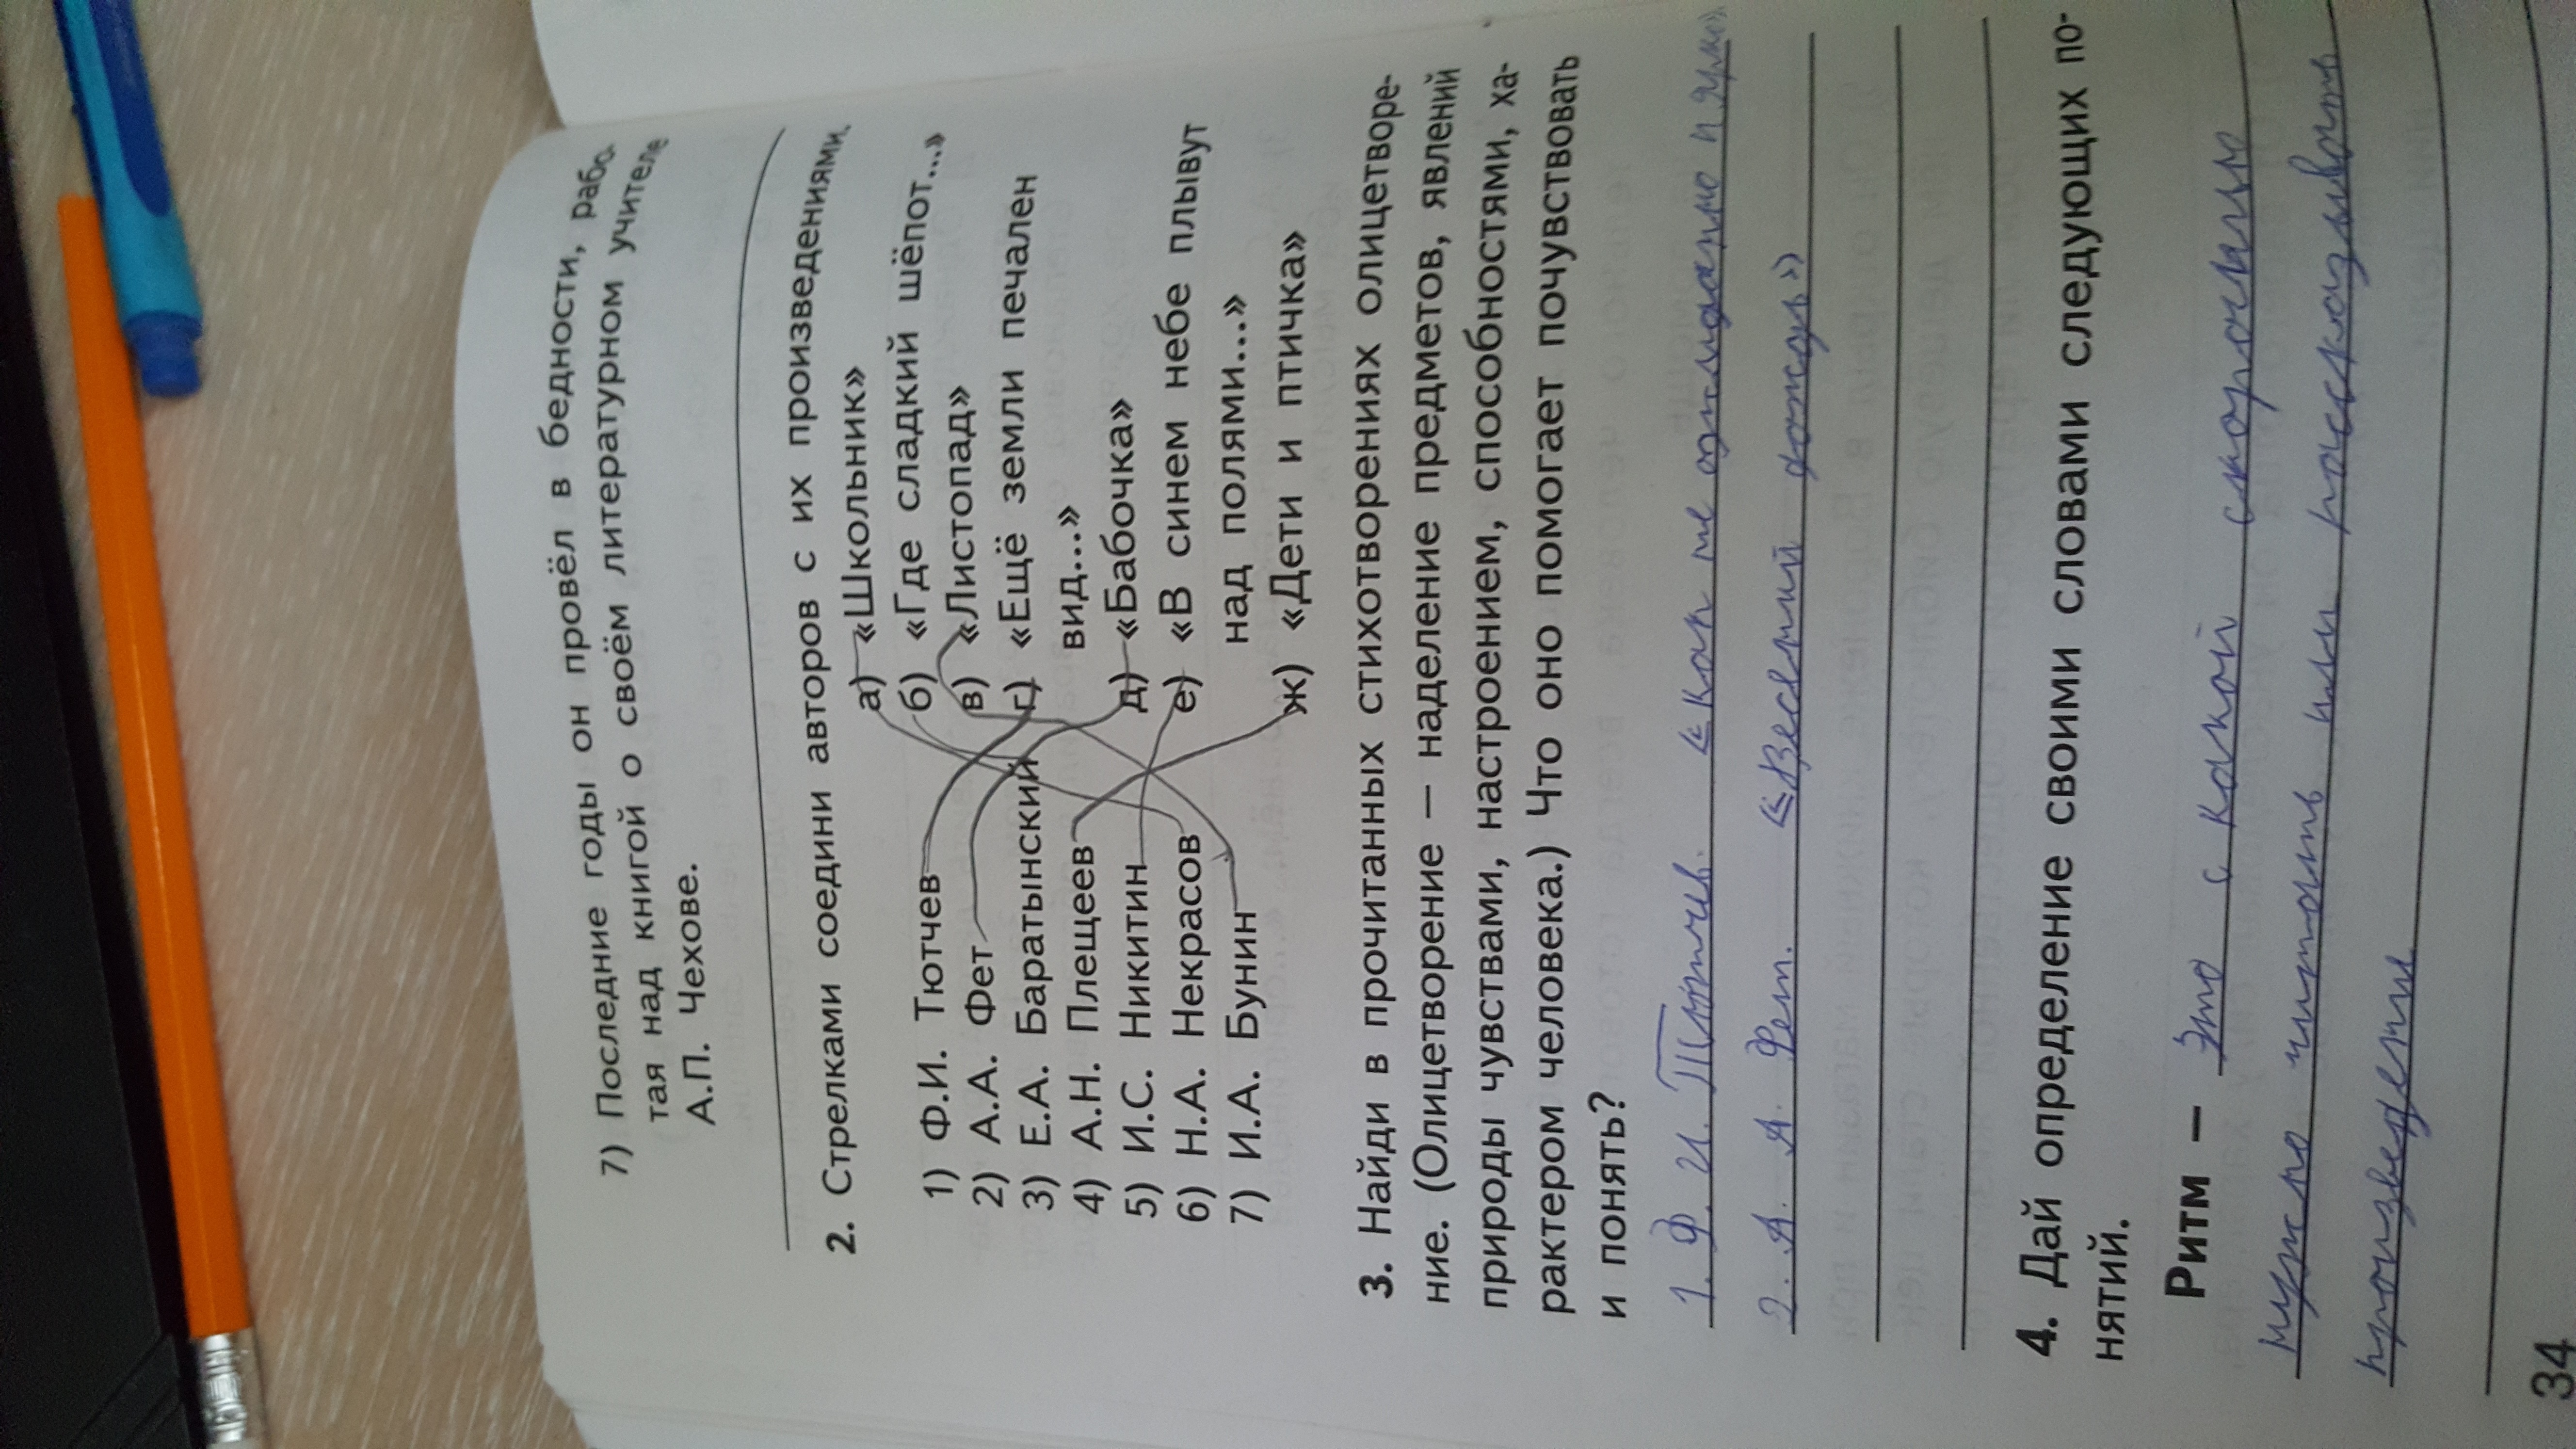 7) Последние годы он провёл в бедности, рабо-
тая над книгой о своём литературном учителе
А.П. Чехове.
2. Стрелками соедини авторов с их произведениями.
1) Ф.И. Тютчев
2) А.А. Фет
3) Е.А. Баратынский
4) А.Н. Плещеев
5) И.С. Никитин
6) Н.А. Некрасов
7) И.А. Бунин
а) «Школьник»
б) «Где сладкий шёпот...»
в) «Листопад»
г) «Ещё земли печален
вид...»
д) «Бабочка»
е) «В синем небе плывут
над полями...»
ж) «Дети и птичка»
3. Найди в прочитанных стихотворениях олицетворе-
ние. (Олицетворение — наделение предметов, явлений
природы чувствами, настроением, способностями, ха-
рактером человека.) Что оно помогает почувствовать
и понять?
1. Ф. И. Тютчев. «Как не ожиданно и ярко»
2. А. А. Фет. «Весений дождь»
4. Дай определение своими словами следующих по-
нятий.
Ритм — это с какой скоростью
нужно читать или рассказывать
произведение
34